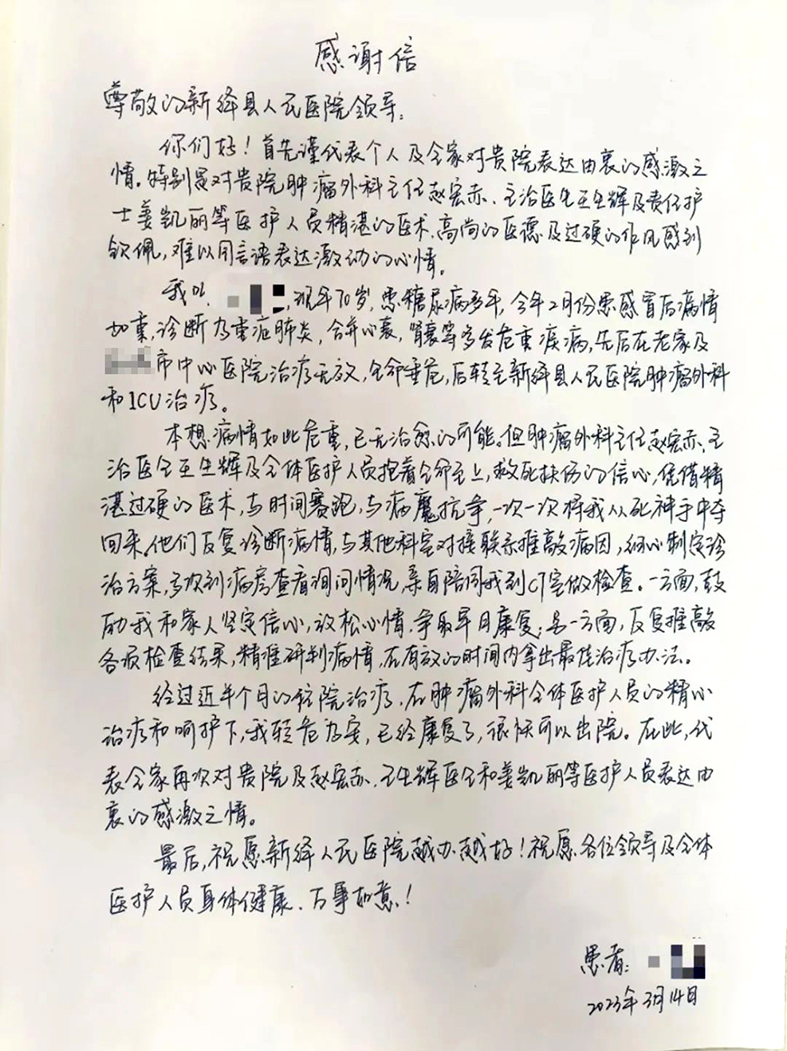 感谢信
尊敬的新绛县人民医院领导:
你们好!首先谨代表个人及全家对贵院表达由衷的感激之
情。特别是对贵院肿瘤外科主任赵宏亦、主治医生王生辉及责任护
士姜凯丽等医护人员精湛的医术、高尚的医德及过硬的作风感到
钦佩,难以用言语表达激动的心情。
我叫 ,现年70岁,患糖尿病多年,今年2月份患感冒后病情
加重,诊断为重症肺炎,合并心衰,肾衰等多发危重疾病,先后在老家及
市中心医院治疗无效,生命垂危,后转至新绛县人民医院肿瘤外科
和ICU治疗。
本想病情如此危重,已无治愈的可能。但肿瘤外科主任赵宏亦、主
治医生王生辉及全体医护人员抱着生命至上,救死扶伤的信心,凭借精
湛过硬的医术,与时间赛跑,与病魔抗争,一次一次将我从死神手中夺
回来。他们反复诊断病情,与其他科室对接联系推敲病因,细心制定诊
治方案,多次到病房查看询问情况,亲自陪同我到CT室做检查。一方面,鼓
励我和家人坚定信心,放松心情,争取早日康复;另一方面,反复推敲
各项检查结果,精准研判病情,在有效的时间内拿出最佳治疗办法。
经过近半个月的住院治疗,在肿瘤外科全体医护人员的精心
治疗和呵护下,我转危为安,已经康复了,很快可以出院。在此,代
表全家再次对贵院及赵宏亦、王生辉医生和姜凯丽等医护人员表达由
衷的感激之情。
最后,祝愿新绛人民医院越办越好!祝愿各位领导及全体
医护人员身体健康、万事如意!
患者:
2023年3月14日